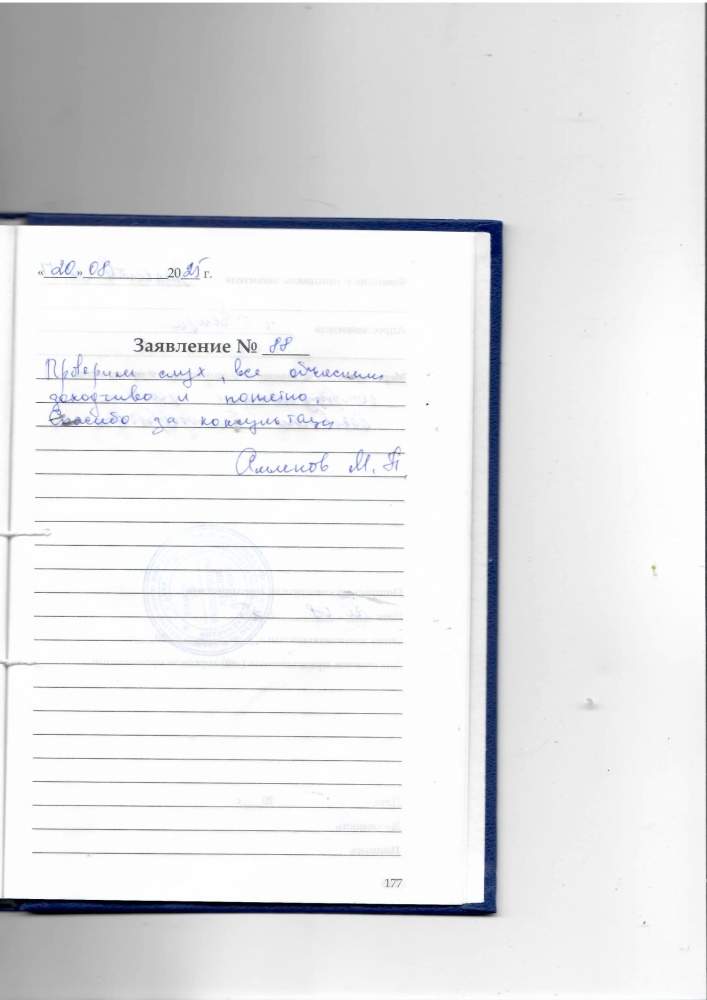 «20» 08 2025 г.
Заявление № 88
Проверили слух, все объяснили
доходчиво и понятно.
Спасибо за консультаци
М. П.
177